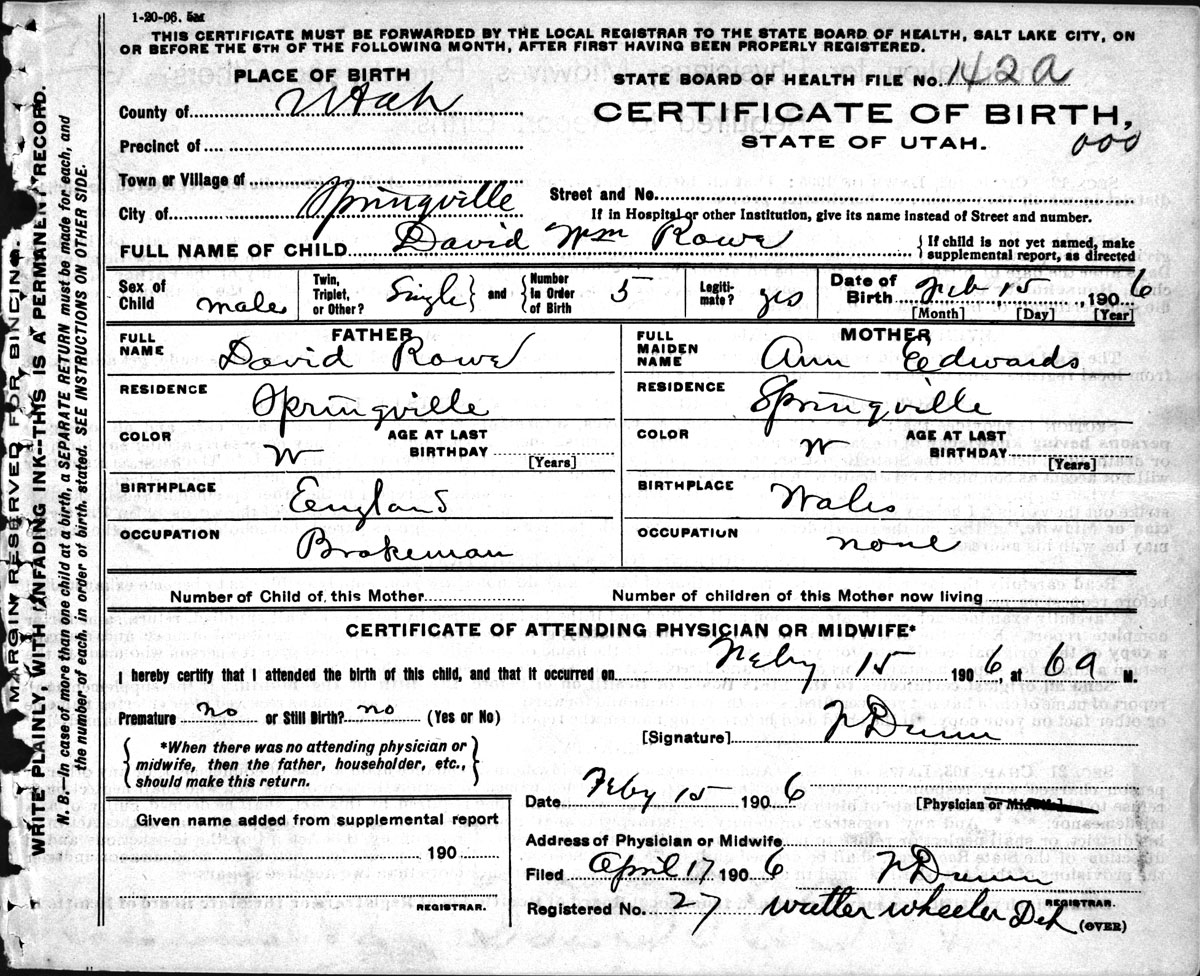 1-20-06. 5M
THIS CERTIFICATE MUST BE FORWARDED BY THE LOCAL REGISTRAR TO THE STATE BOARD OF HEALTH, SALT LAKE CITY, ON
OR BEFORE THE 5TH OF THE FOLLOWING MONTH, AFTER FIRST HAVING BEEN PROPERLY REGISTERED.
PLACE OF BIRTH
STATE BOARD OF HEALTH FILE No. 142a
County of Utah
CERTIFICATE OF BIRTH,
STATE OF UTAH.
000
Precinct of
Town or Village of
City of Springville
Street and No.
If in Hospital or other Institution, give its name instead of Street and number.
FULL NAME OF CHILD David Wm Rowe
{If child is not yet named, make
supplemental report, as directed
Sex of Child male
Twin, Triplet, or Other? Single } and { Number In Order of Birth 5
Legitimate? yes
Date of Birth Feb 15, 1906
[Month] [Day] [Year]
FATHER
FULL NAME David Rowe
RESIDENCE Springville
COLOR W
AGE AT LAST BIRTHDAY
[Years]
BIRTHPLACE England
OCCUPATION Brakeman
MOTHER
FULL MAIDEN NAME Ann Edwards
RESIDENCE Springville
COLOR W
AGE AT LAST BIRTHDAY
[Years]
BIRTHPLACE Wales
OCCUPATION none
Number of Child of, this Mother
Number of children of this Mother now living
CERTIFICATE OF ATTENDING PHYSICIAN OR MIDWIFE*
I hereby certify that I attended the birth of this child, and that it occurred on Feby 15 1906, at 6 a M.
Premature no or Still Birth? no (Yes or No)
[Signature] F Dunn
{*When there was no attending physician or
midwife, then the father, householder, etc.,
should make this return.}
Date Feby 15 1906
[Physician or Midwife]
Given name added from supplemental report
190
REGISTRAR.
Address of Physician or Midwife
Filed April 17 1906 F Dunn
REGISTRAR.
Registered No. 27 Walter Wheeler Dep
(OVER)
MARGIN RESERVED FOR BINDING.
WRITE PLAINLY, WITH UNFADING INK--THIS IS A PERMANENT RECORD.
N. B.--In case of more than one child at a birth, a SEPARATE RETURN must be made for each, and
the number of each, in order of birth, stated. SEE INSTRUCTIONS ON OTHER SIDE.